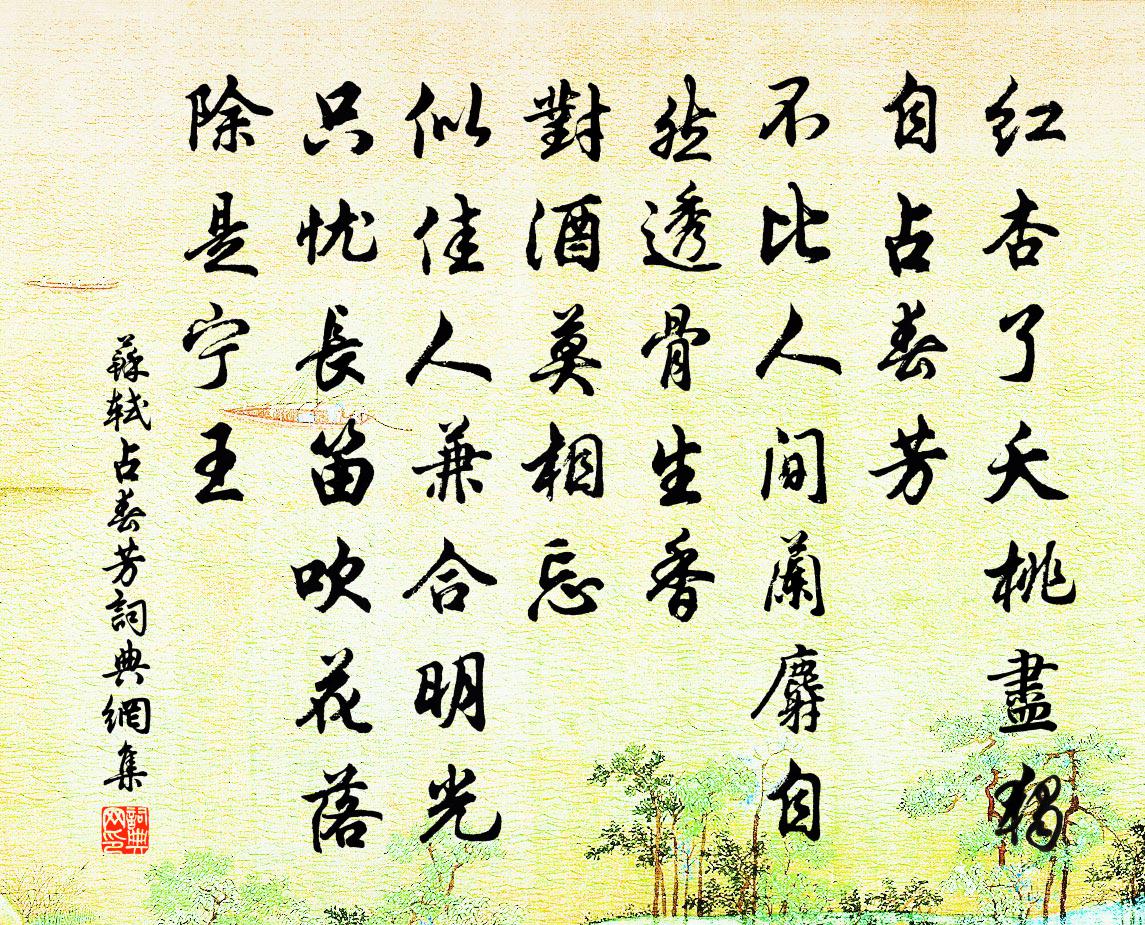 红杏了夭桃盡獨
自占春芳
不比人间蘭麝自
然透骨生香
對酒莫相忘
似佳人兼合明光
只忧長笛吹花落
除是宁王
蘇軾占春芳詞典網集
詞典网印